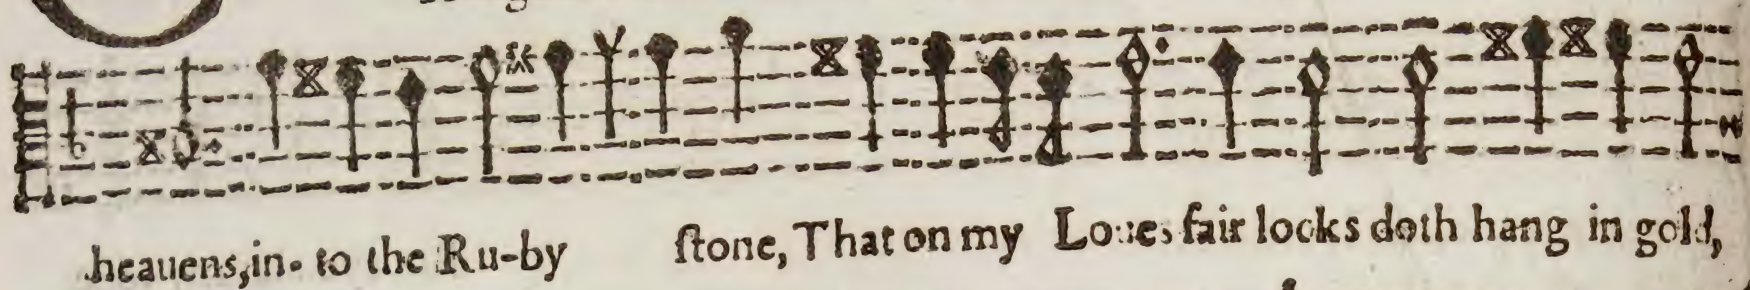 heauens,in- to the Ru-by ſtone, That on my Loues fair locks doth hang in gold,